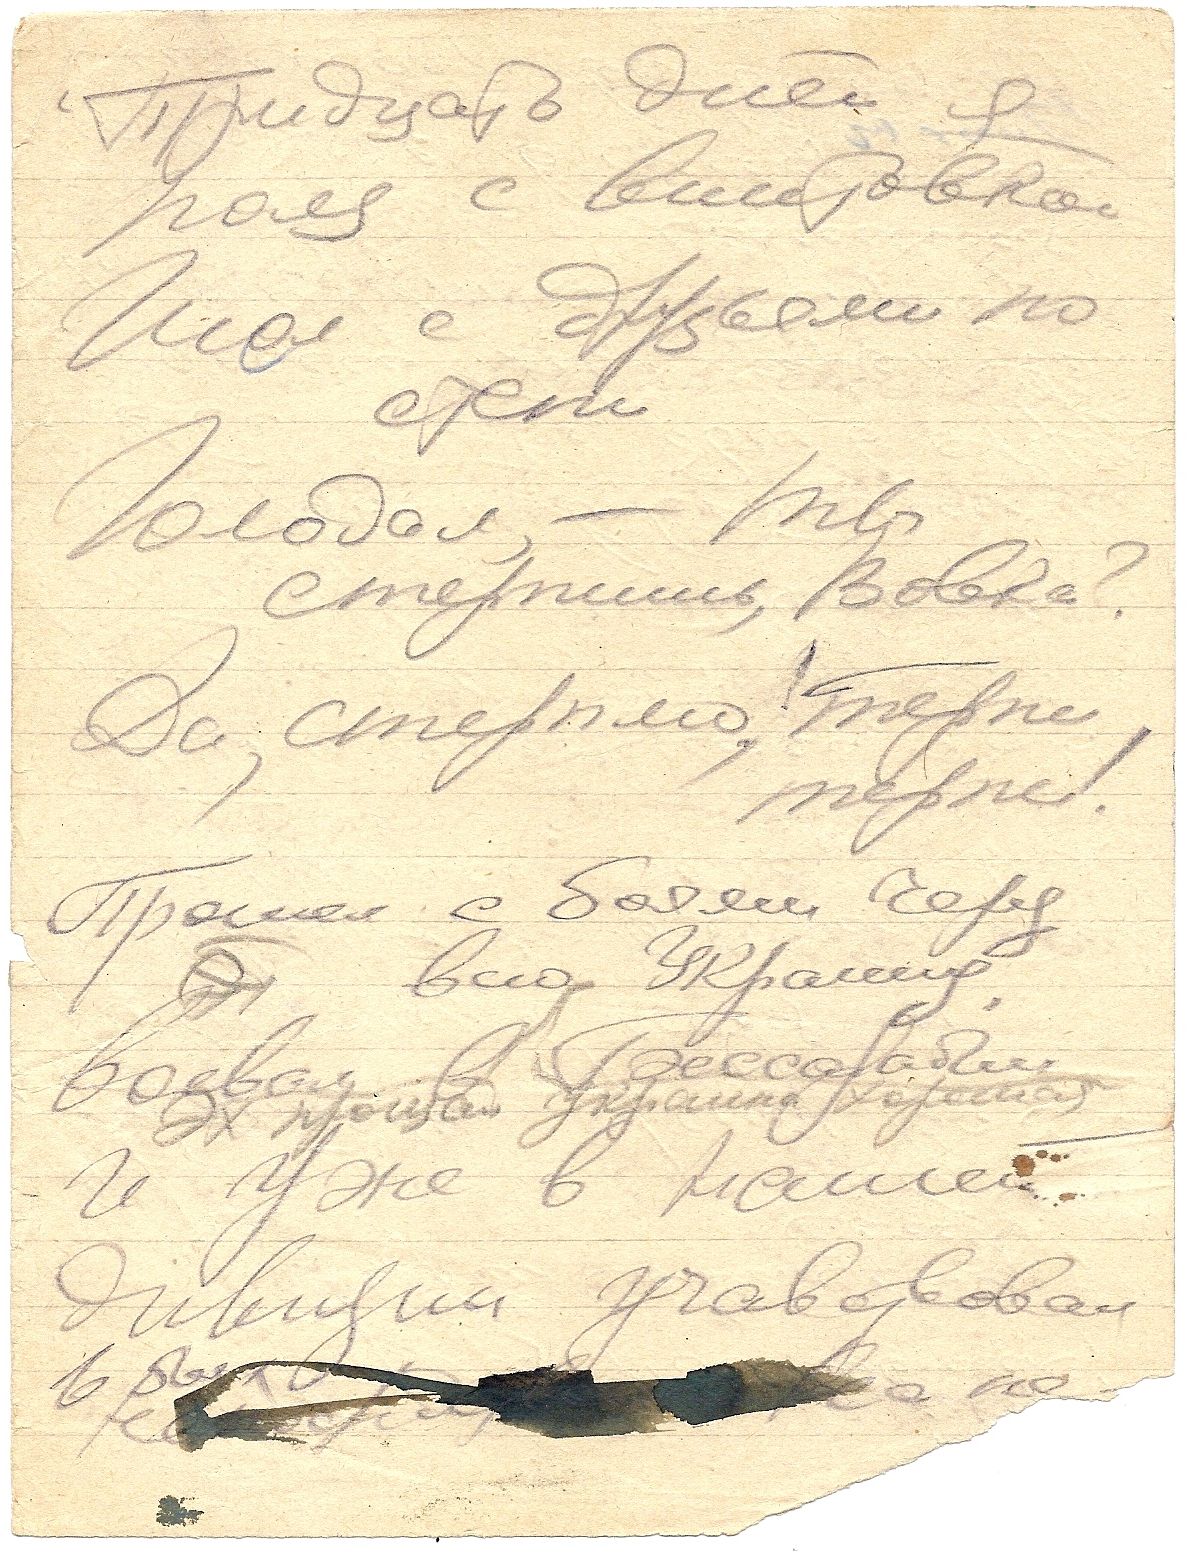 "Тридцать дней я
полз с винтовкой
Шел с друзьями по
степи
Голодал, — ты
стерпишь, Вовка?
Да, стерплю! Терпи,
терпи!
Прошел с боями через
всю Украину.
Воевал в Бессарабии
Эх прощай Украина хорошая
И уже в нашей
дивизии участвовал
в боях
на по-